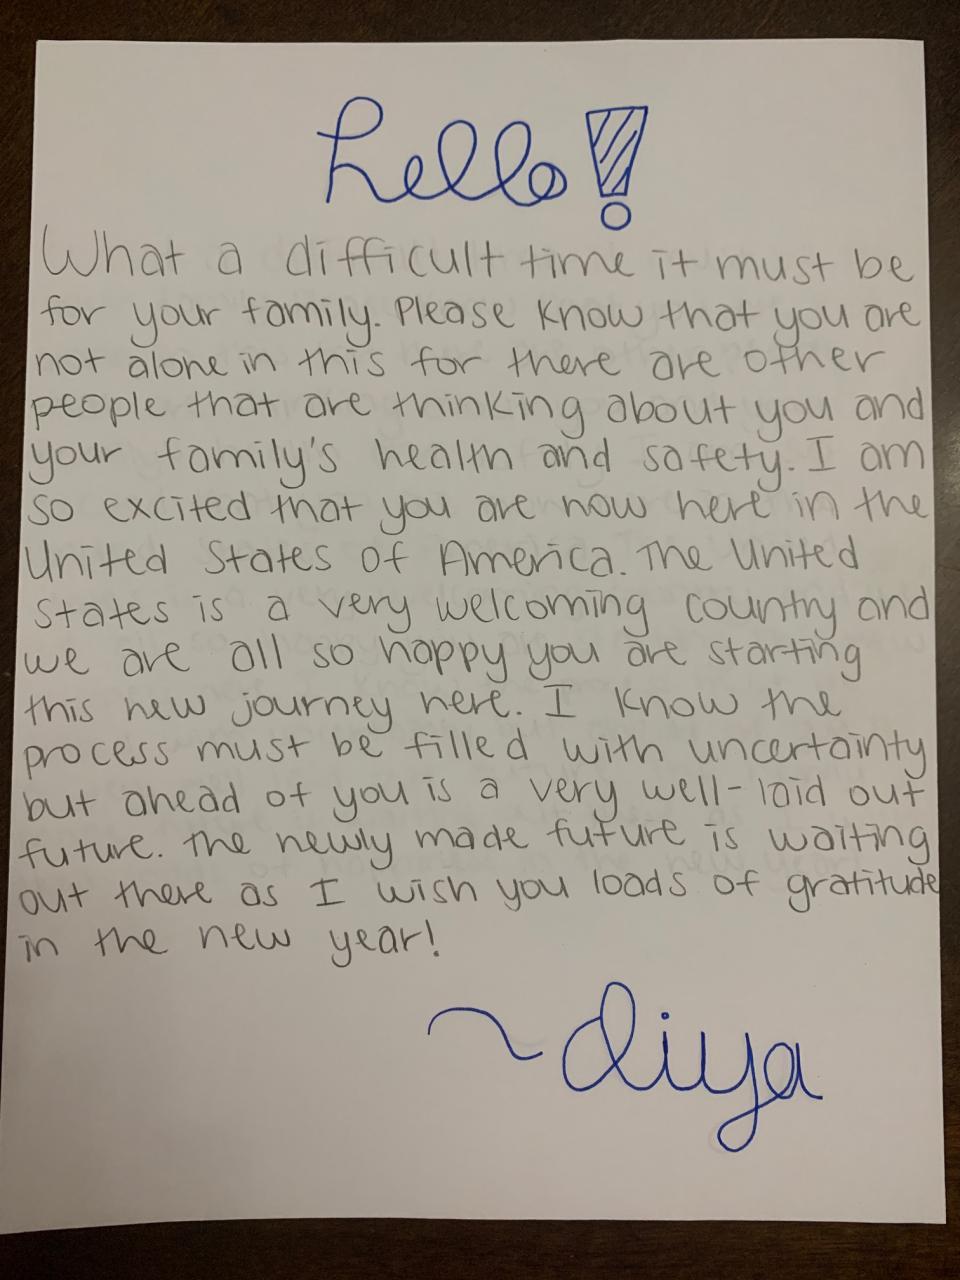 hello!
What a difficult time it must be
for your family. Please know that you are
not alone in this for there are other
people that are thinking about you and
your family's health and safety. I am
so excited that you are now here in the
United States of America. The United
States is a very welcoming country and
we are all so happy you are starting
this new journey here. I know the
process must be filled with uncertainty
but ahead of you is a very well-laid out
future. The newly made future is waiting
out there as I wish you loads of gratitude
in the new year!
~diya